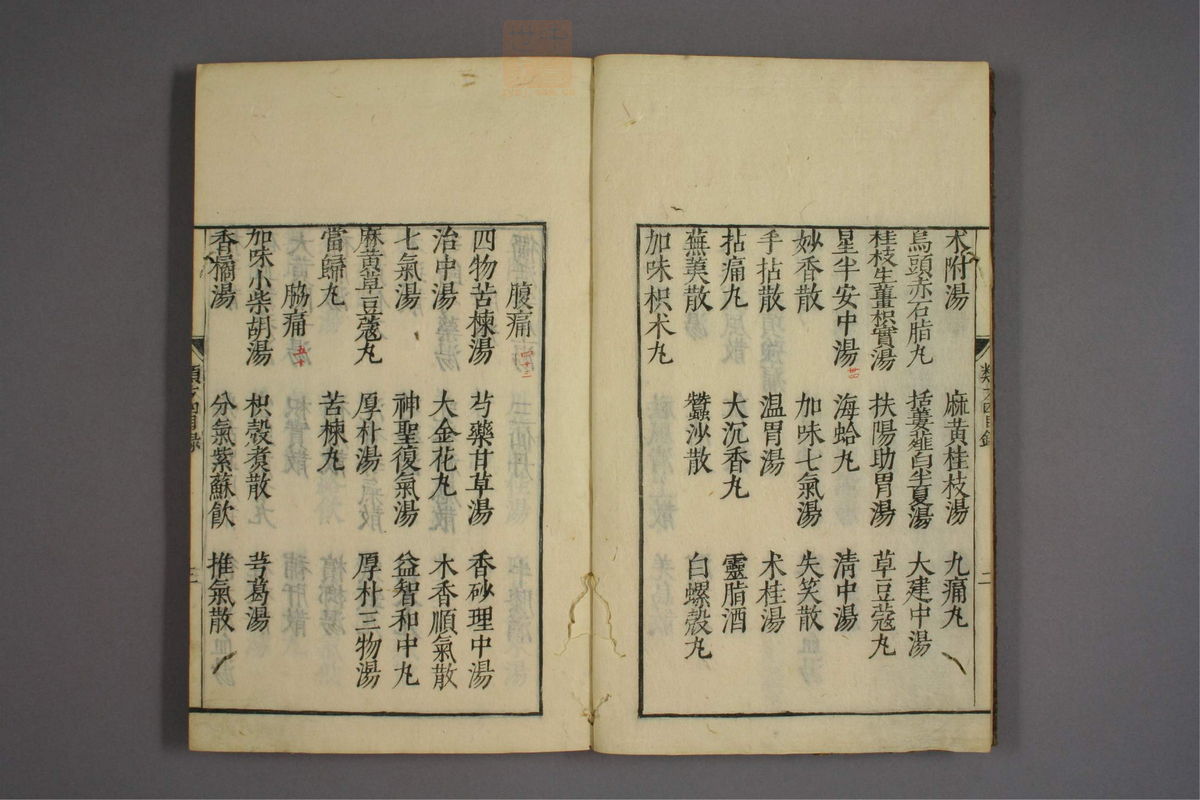 朮附湯 麻黃桂枝湯 九痛丸
烏頭赤石脂丸 括蔞薤白半夏湯 大建中湯
桂枝生薑枳實湯 扶陽助胃湯 草豆蔻丸
星半安中湯 海蛤丸 清中湯
妙香散 加味七氣湯 失笑散
手拈散 溫胃湯 朮桂湯
拈痛丸 大沉香丸 靈脂酒
蕪荑散 蠶沙散 白螺殼丸
加味枳朮丸
腹痛 四十二
四物苦楝湯 芍藥甘草湯 香砂理中湯
治中湯 大金花丸 木香順氣散
七氣湯 神聖復氣湯 益智和中丸
麻黃草豆蔻丸 厚朴湯 厚朴三物湯
當歸丸 苦楝丸
脇痛 五十
加味小柴胡湯 枳殼煑散 芎葛湯
香橘湯 分氣紫蘇飲 推氣散